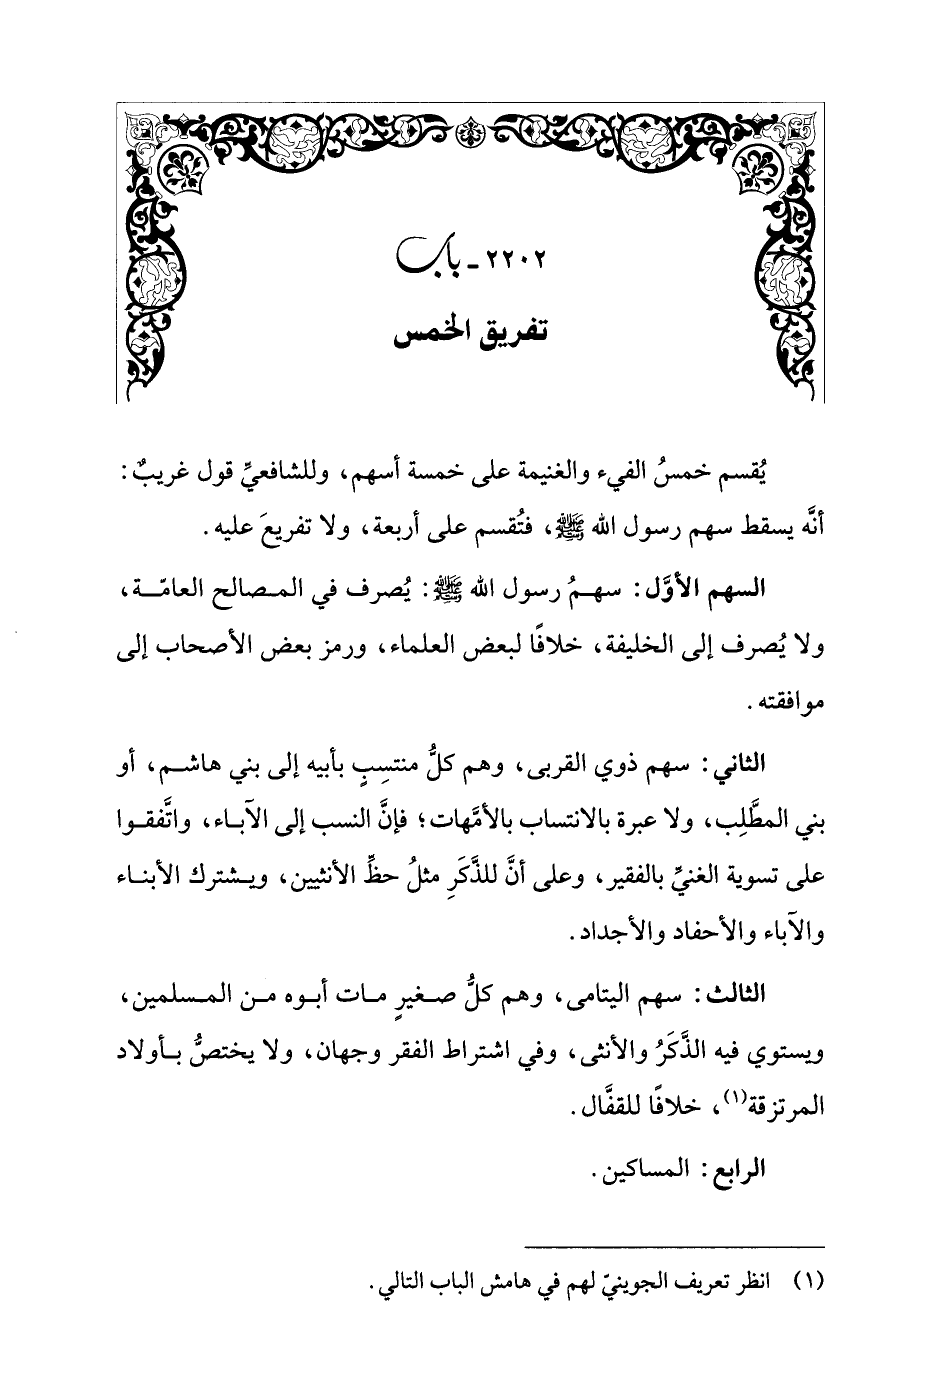 ٢٢٠٢ - باب
تفريق الخمس
يُقسم خمسُ الفيء والغنيمة على خمسة أسهم، وللشافعيِّ قول غريبٌ:
أنَّه يسقط سهم رسول الله ﷺ، فتُقسم على أربعة، ولا تفريعَ عليه.
السهم الأوَّل: سهمُ رسول الله ﷺ: يُصرف في المصالح العامّة،
ولا يُصرف إلى الخليفة، خلافًا لبعض العلماء، ورمز بعض الأصحاب إلى
موافقته.
الثاني: سهم ذوي القربى، وهم كلُّ منتسِبٍ بأبيه إلى بني هاشم، أو
بني المطَّلِب، ولا عبرة بالانتساب بالأمَّهات؛ فإنَّ النسب إلى الآباء، واتَّفقوا
على تسوية الغنيِّ بالفقير، وعلى أنَّ للذَّكَرِ مثلُ حظِّ الأنثيين، ويشترك الأبناء
والآباء والأحفاد والأجداد.
الثالث: سهم اليتامى، وهم كلُّ صغيرٍ مات أبوه من المسلمين،
ويستوي فيه الذَّكَرُ والأنثى، وفي اشتراط الفقر وجهان، ولا يختصُّ بأولاد
المرتزقة(١)، خلافًا للقفَّال.
الرابع: المساكين.
(١) انظر تعريف الجوينيّ لهم في هامش الباب التالي.